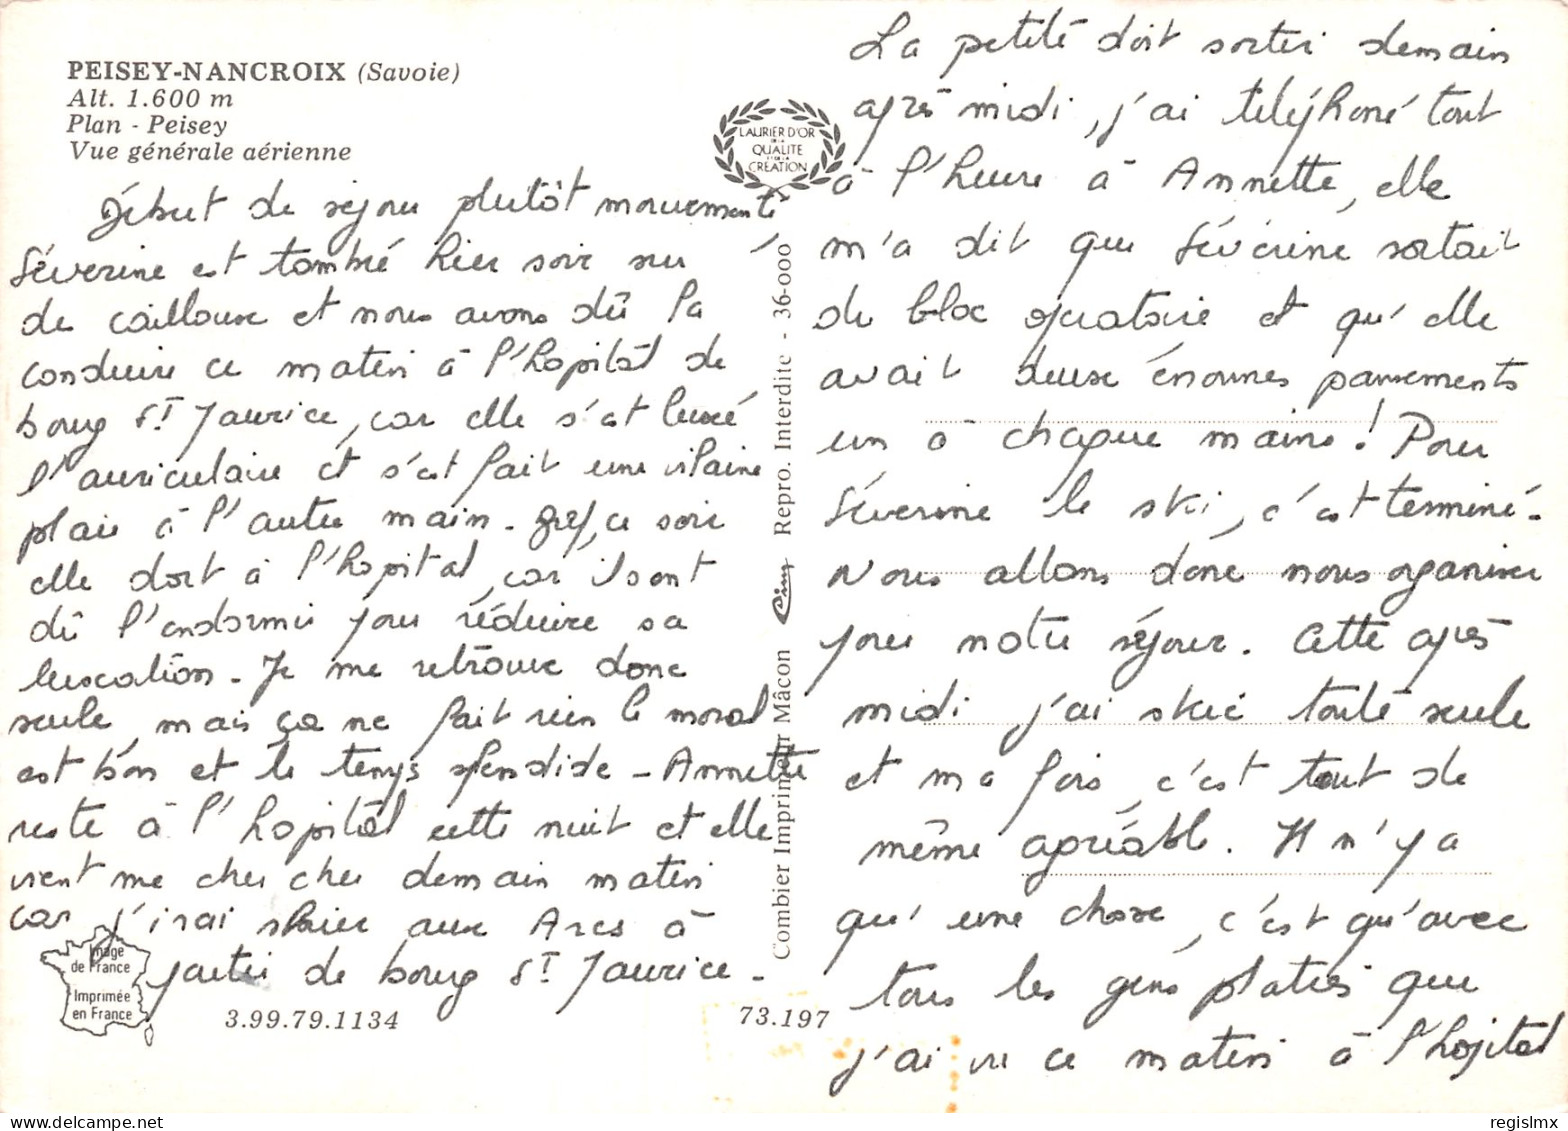 PEISEY-NANCROIX (Savoie)
Alt. 1.600 m
Plan - Peisey
Vue générale aérienne
Début de séjour plutôt mouvementé,
Séverine est tombé hier soir sur
des cailloux et nous avons dû la
conduire ce matin à l'hopitâl de
bourg St Maurice, car elle s'est luxé
l'auriculaire et s'est fait une vilaine
plaie à l'autre main. Bref, ce soir
elle dort à l'hopital, car ils ont
dû l'endormir pour réduire sa
luxation. Je me retrouve donc
seule, mais ça ne fait rien le moral
est bon et le temps splendide - Annette
reste à l'hopitâl cette nuit et elle
vient me chercher demain matin
car j'irai skier aux Arcs à
partir de bourg St Maurice.
Image
de France
Imprimée
en France
3.99.79.1134
LAURIER D'OR
DE LA
QUALITE
ET DE LA
CRÉATION
Combier Imprimeur Mâcon Cim Repro. Interdite - 36-000
73.197
La petite doit sortir demain
après midi, j'ai téléphoné tout
à l'heure à Annette, elle
m'a dit que Séverine sortait
du bloc opératoire et qu'elle
avait deux énormes pansements
un à chaque mains! Pour
Séverine le ski, c'est terminé.
Nous allons donc nous organiser
pour notre séjour. Cette après
midi j'ai skié toute seule
et ma fois, c'est tout de
même agréable. Il n'y a
qu'une chose, c'est qu'avec
tous les gens platrés que
j'ai vu ce matin à l'hopital
regislmx